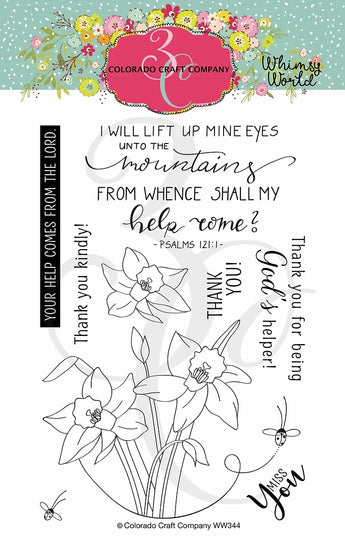 COLORADO CRAFT COMPANY
Whimsy
World
I WILL LIFT UP MINE EYES
UNTO THE
mountains
FROM WHENCE SHALL MY
help come?
- PSALMS 121:1 -
YOUR HELP COMES FROM THE LORD.
Thank you kindly!
THANK
YOU!
Thank you for being
God's helper!
MISS
You
© Colorado Craft Company WW344